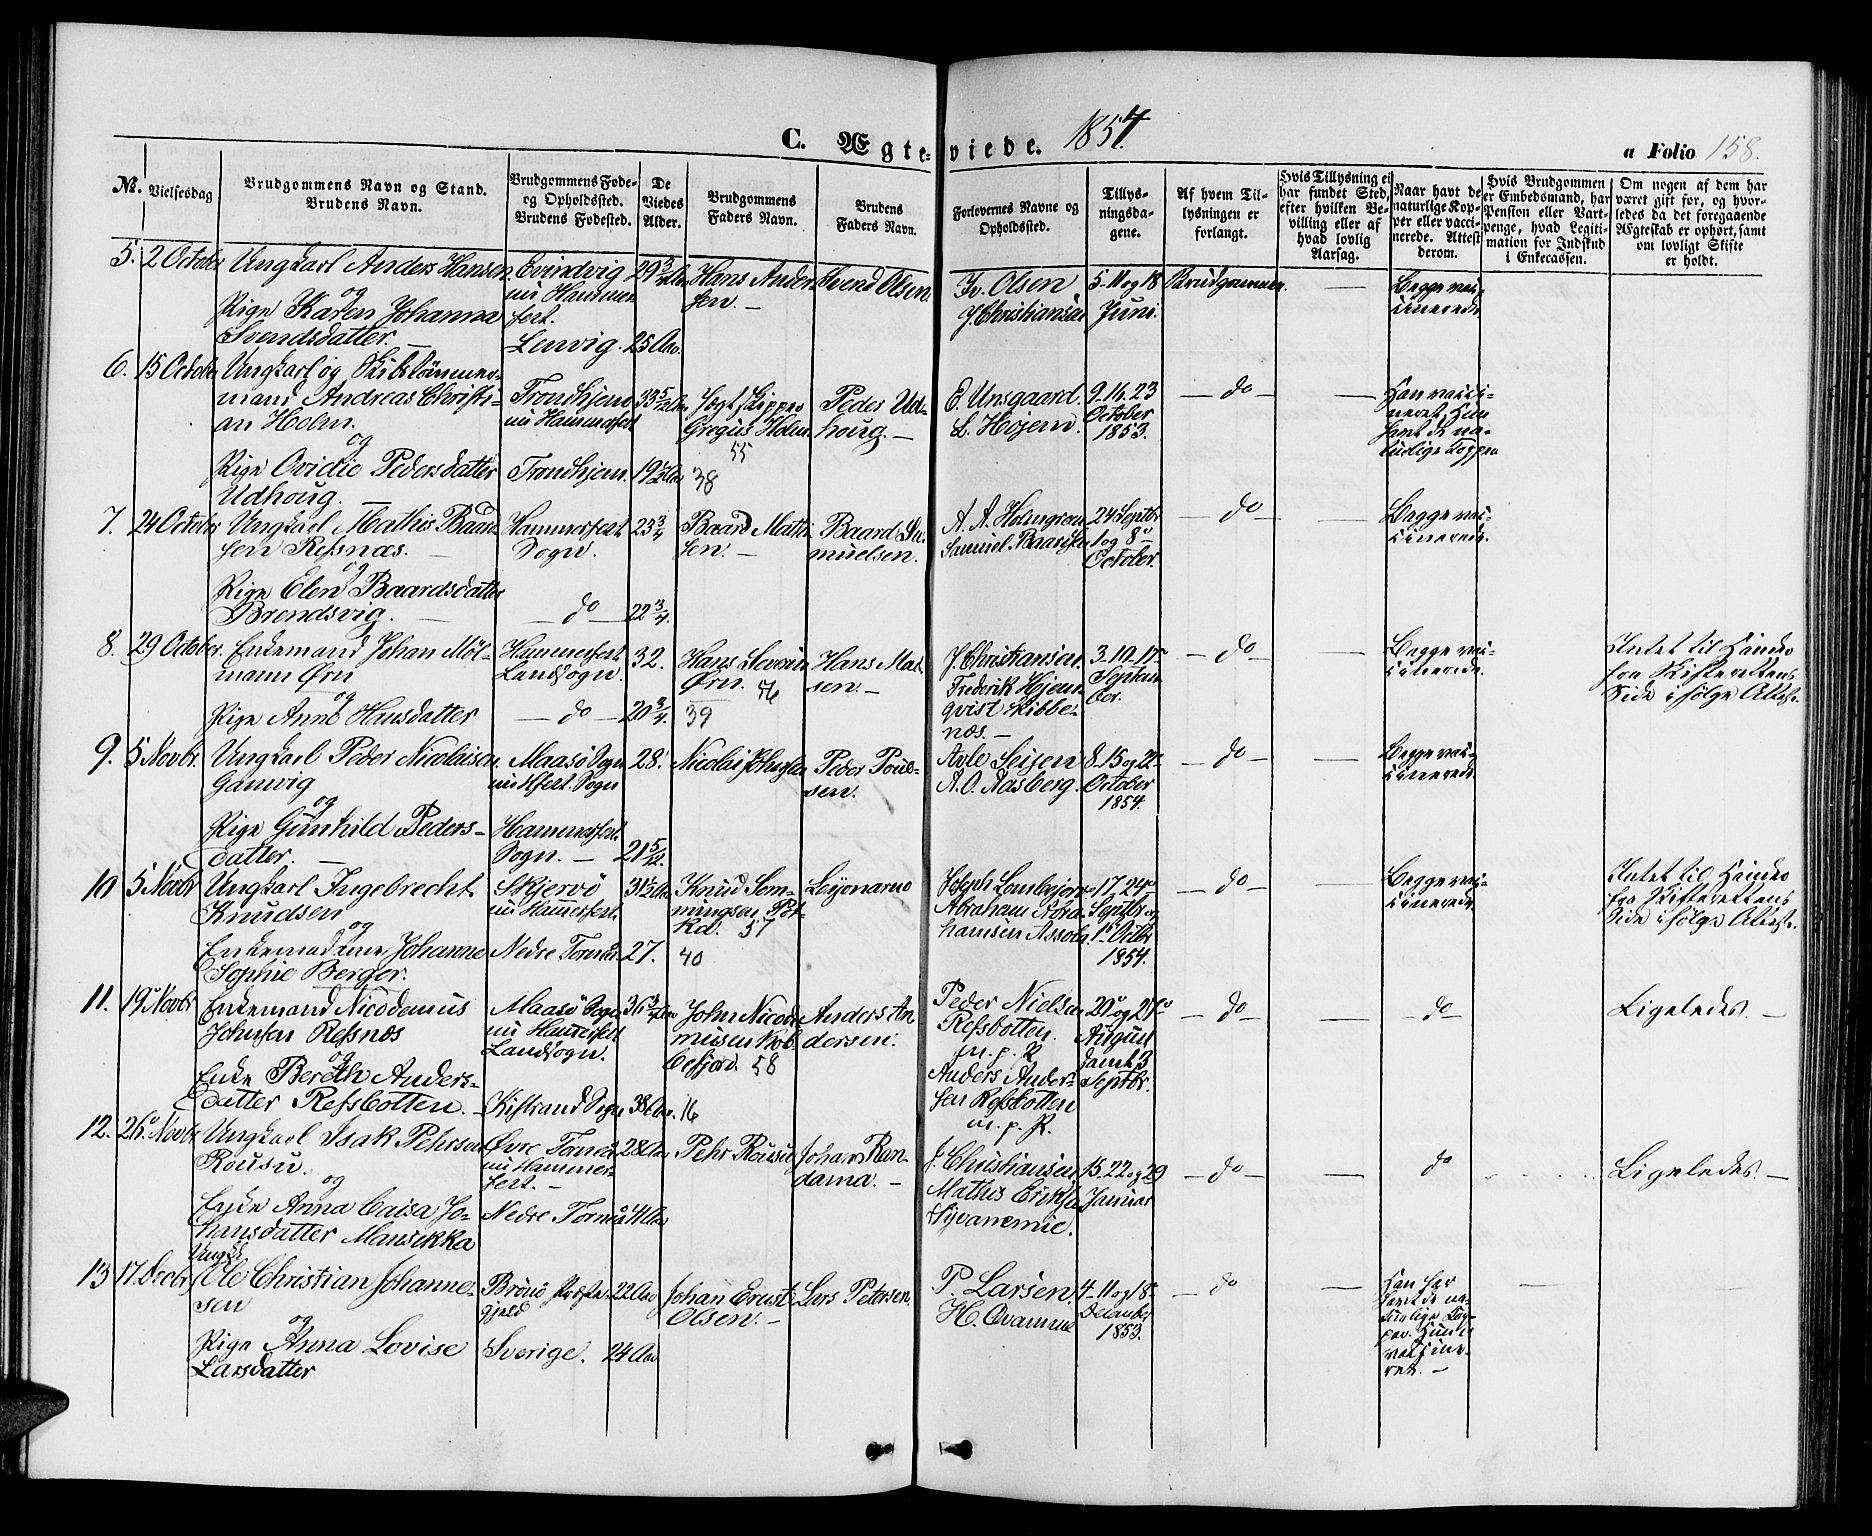 C. Ægte-viede. 1854.
a Folio 158.
No.
Vielsesdag
Brudgommens Navn og Stand.
Brudens Navn.
Brudgommens Føde-
og Opholdssted.
Brudens Fødested.
De
Viedes
Alder.
Brudgommens
Faders Navn.
Brudens
Faders Navn.
Forlovernes Navne og
Opholdssted.
Tillys-
ningsda-
gene.
Af hvem Til-
lysningen er
forlangt.
Hvis Tillysning ei
har fundet Sted,
efter hvilken Be-
villing eller af
hvad lovlig
Aarsag.
Naar havt de
naturlige Kop-
per eller vacci-
nerede. Attest
derom.
Hvis Brudgommen
er Embedsmand, har
Pension eller Vart-
penge, hvad Legiti-
mation for Indskud
i Enkecassen.
Om nogen af dem har
været gift før, og hvor-
ledes da det foregaaende
Ægteskab er ophørt, samt
om lovligt Skifte
er holdt.
5. 2 October Ungkarl Anders Hansen
og
Pige Karen Johanna
Svendsdatter.
Evindvig
nu Hammer-
fest.
Lenvig.
25 Aar.
Hans Ander-
sen. —
Svend Olsen.
Iv. Olsen
J. Christiansen
5-11 og 18
Juni.
Brudgommen.
—
Begge vac-
cinerede
6. 15 October Ungkarl og Skibstømmer-
mand Andreas Christi-
an Holm.
og
Pige Ovidie Pedersdatter
Udhoug. —
Trondhjem
nu Hammerfest
Trondhjem.
33 5/12 Aar
Jægt skipper
Gregus Holm
55
38
Peder Ud-
houg. —
E. Unsgaard.
L. Højem.
9. 16. 23
October
1853.
— do —
—
Han vacci-
neret, Hun
havt de na-
turlige Kopper
7. 24 October Ungkarl Mathis Baard-
sen Refsnæs. —
og
Pige Elen Baardsdatter
Brendsvig. —
Hammerfest
Sogn.
— do —
23 3/4
22 3/4.
Baard Mathi-
sen. —
Baard Sa-
muelsen.
A. A. Holmgren
Samuel Baardsen
24 Septbr
1 og 8de
October.
— do —
—
Begge vac-
cinerede.
8. 29 October. Enkemand Johan Møl-
mann Ørn
og
Pige Anne Hansdatter
Hammerfest
Landsogn.
— do —
32.
20 3/4.
Hans Severin
Ørn. 56
39
Hans Mad-
sen. —
J. Christiansen.
Frederik Hjem-
qvist Kibbe-
næs. —
3-10-17de
Septem-
ber.
— do —
—
Begge vac-
cinerede.
Intet til Hinder
fra Skifterettens
Side ifølge Attest.
9. 5 Novbr. Ungkarl Peder Nicolaisen
Gamvig
og
Pige Gunhild Peders-
datter. —
Maasø Sogn
nu Hfest. Sogn
Hammerfest
Sogn. —
28.
21 5/12.
Nicolai Johnsen
Peder Poul-
sen.
Avle Seijen
A. O. Aasberg.
October
1854.
— do —
—
Begge vac-
cinerede
10 5 Novbr Ungkarl Ingebrecht
Knudsen
og
Enkemadame Johanne
Sophie Berger.
Skjervø
nu Hammerfest.
Nedre Torneå
27.
Knud Sem-
mingsen
57
40
Abraham Abra-
hamsen
17. 24de
Septbr og
1ste Octbr
1854.
— do —
—
Begge vac-
cinerede
Intet til Hinder
fra Skifterettens
Side ifølge Attest.
11. 19de Novbr Enkemand Nicodemus
Johnsen Refsnæs
og
Enke Bereth Anders-
datter Refsbotten. —
Maasø Sogn
nu Hammerfest
Landsogn.
Kistrand Sogn
36 3/4 Aar
38 Aar.
John Nicode-
musen Kob-
befjord. 58
16
Anders An-
dersen.
Peder Nielsen
Refsbotten.
m. p. P.
Anders Ander-
sen Refsbotten
m. p. P.
20de og 27de
August
samt 3
Septbr.
— do —
—
— do —
Ligeledes. —
12. 26de Novbr Ungkarl Isak Pehrsen
Rousu.
og
Enke Anna Caisa Jo-
hansdatter Mansikka
Øvre Torneå
nu Hammer-
fest. —
Nedre Torneå
28 Aar
41 Aar
Pehr Rousu
Johan Ran-
dama. —
J. Christiansen
Mathis Eriksen
Syvanemie.
15. 22 og 29
Januar
— do —
—
do
Ligeledes. —
13 17. Decbr Ungk.
Ole Christian Johanne-
sen
og
Pige Anna Lovise
Larsdatter
Brønø Præste-
gjeld
Sverige.
22 Aar
24 Aar
Johan Ernst
Olsen. —
Lars Petersen.
P. Larsen
H. Qvamme
4-11 og 18de
December
1853.
— do
—
Han har
havt de na-
turlige Kop-
per. Hun
vaccine-
ret. —
—